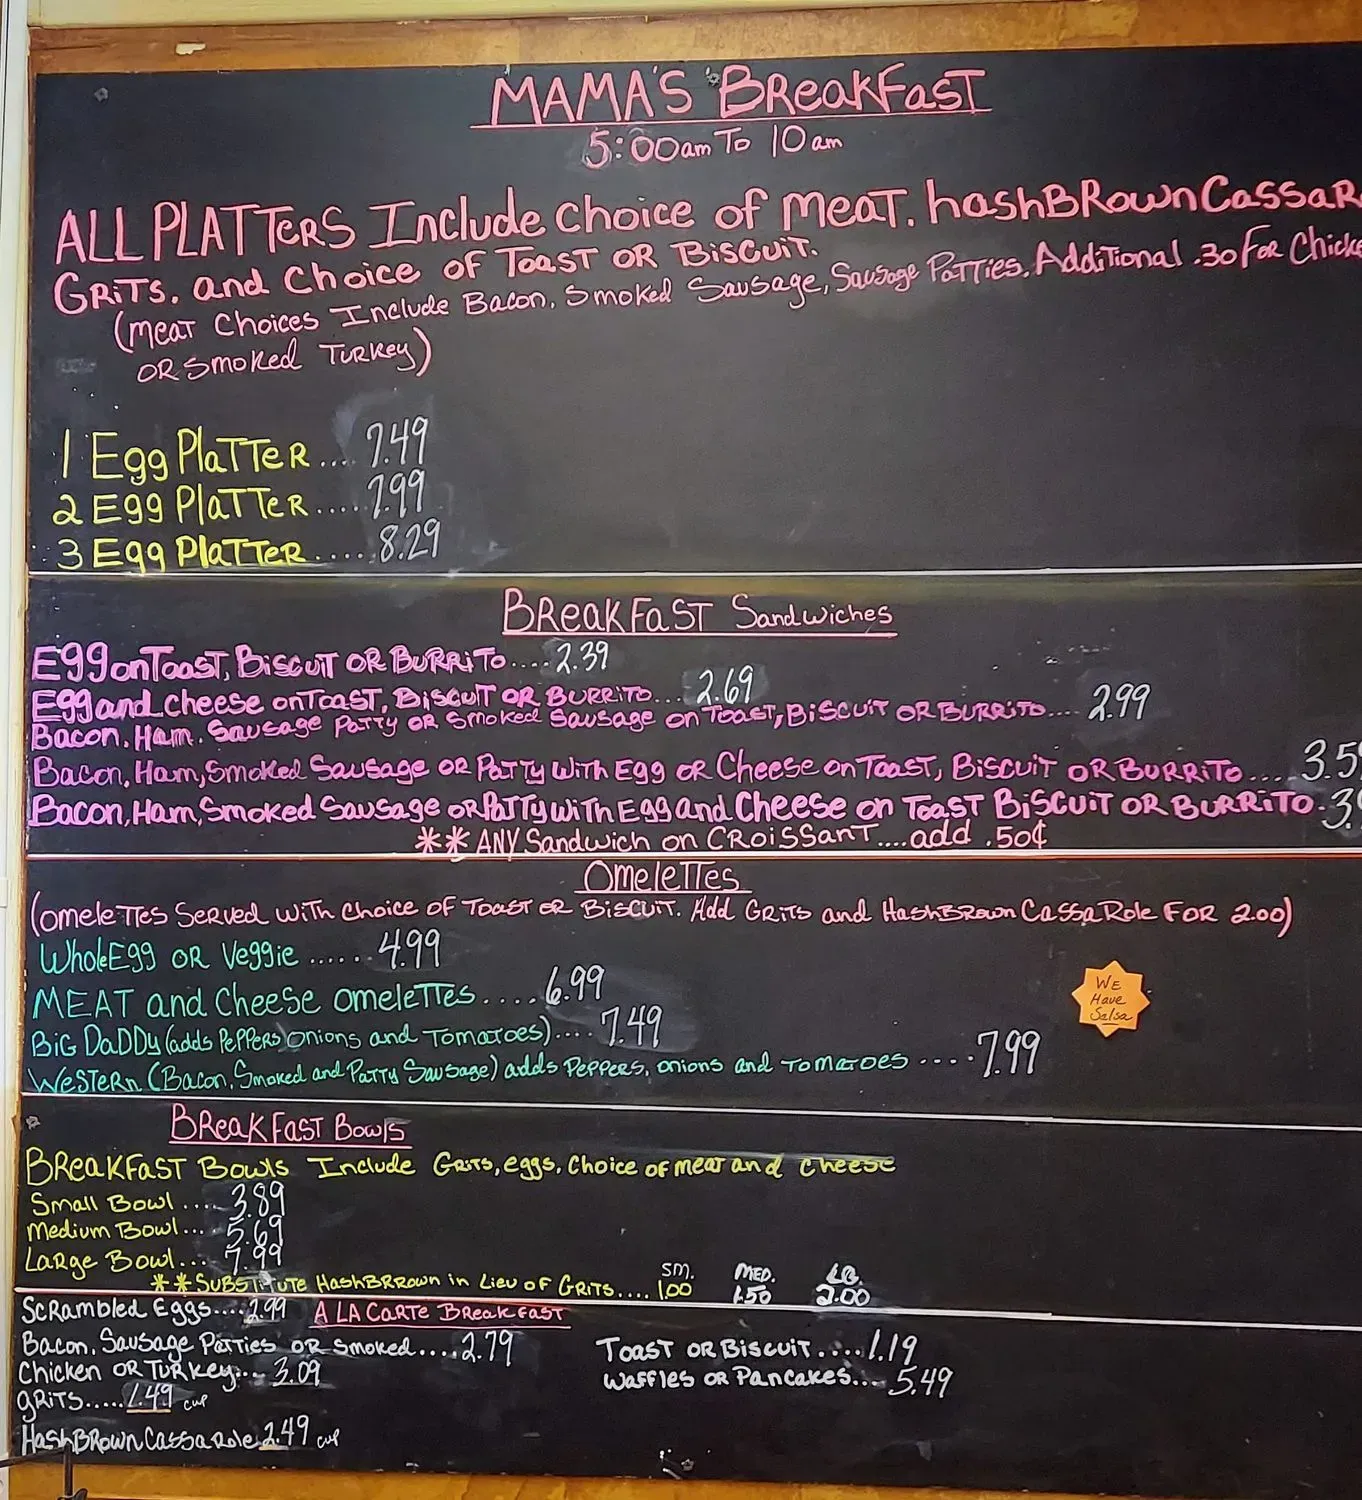 MAMA'S BREAKFAST
5:00am To 10am
ALL PLATTERS Include choice of MEAT. hashBROwnCassaR
GRITS. and Choice of TOAST OR BISCUIT.
(MEAT Choices Include Bacon. Smoked Sausage, Sausage Patties. Additional .30 FOR Chick
OR Smoked TURKey)
1 Egg PLATTER .... 7.49
2 Egg PLATTER ..... 7.99
3 Egg PLATTER ..... 8.29
BREAKFAST Sandwiches
Egg on TOAST, BISCUIT OR BURRITO.... 2.39
Egg and Cheese on TOAST, BISCUIT OR BURRITO.... 2.69
Bacon. Ham. Sausage Patty OR Smoked Sausage on TOAST, BISCUIT OR BURRITO.... 2.99
Bacon, Ham, Smoked Sausage OR PATTY WITH Egg OR Cheese on TOAST, BISCUIT OR BURRITO.... 3.5
Bacon, Ham, Smoked Sausage OR PATTY WITH Egg and Cheese on TOAST BISCUIT OR BURRITO. 3.
** ANY Sandwich on CROISSANT....add .50¢
OMELETTES
(OMELETTES SERVED WITH Choice OF TOAST OR BISCUIT. Add GRITS and HASHBROWN CassaRole FOR 2.00)
Whole Egg OR Veggie ...... 4.99
MEAT and Cheese OMELETTES .... 6.99
BIG DaDDy (adds PEPPERS Onions and TOMATOES).... 7.49
WESTERN (Bacon, Smoked and Patty Sausage) adds PEPPERS, onions and TOMATOES .... 7.99
WE
Have
Salsa
BREAKFAST BOWLS
BREAKFAST BOWLS Include GRITS, eggs, Choice OF MEAT and Cheese
Small BOWL .... 3.89
Medium BOWL.... 5.69
LARge BOWL... 7.99
SM. MED. LG.
** SUBSTITUTE HASHBRROWN in LIEU OF GRITS.... 1.00 1.50 2.00
SCRambled Eggs.... 2.99 A LA CARTE BREAKFAST
Bacon, Sausage Patties OR Smoked.... 2.79 TOAST OR BISCUIT.... 1.19
Chicken OR TURKey.... 3.09 Waffles OR Pancakes... 5.49
GRITS..... 1.49 cup
HashBROWN CassaRole 2.49 cup